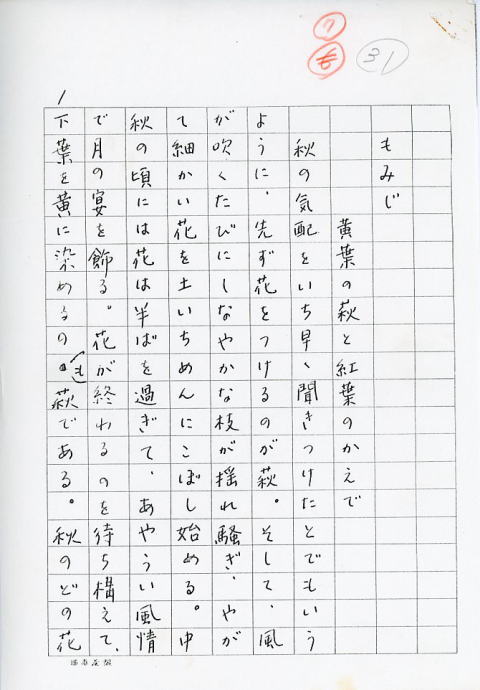 7
31
1
もみじ
黄葉の萩と紅葉のかえで
秋の気配をいち早く聞きつけたとでもいう
ように、先ず花をつけるのが萩。そして、風
が吹くたびにしなやかな枝が揺れ騒ぎ、やが
て細かい花を土いちめんにこぼし始める。中
秋の頃には花は半ばを過ぎて、あやうい風情
で月の宴を飾る。花が終わるのを待ち構えて、
下葉を黄に染めるのも萩である。秋のどの花